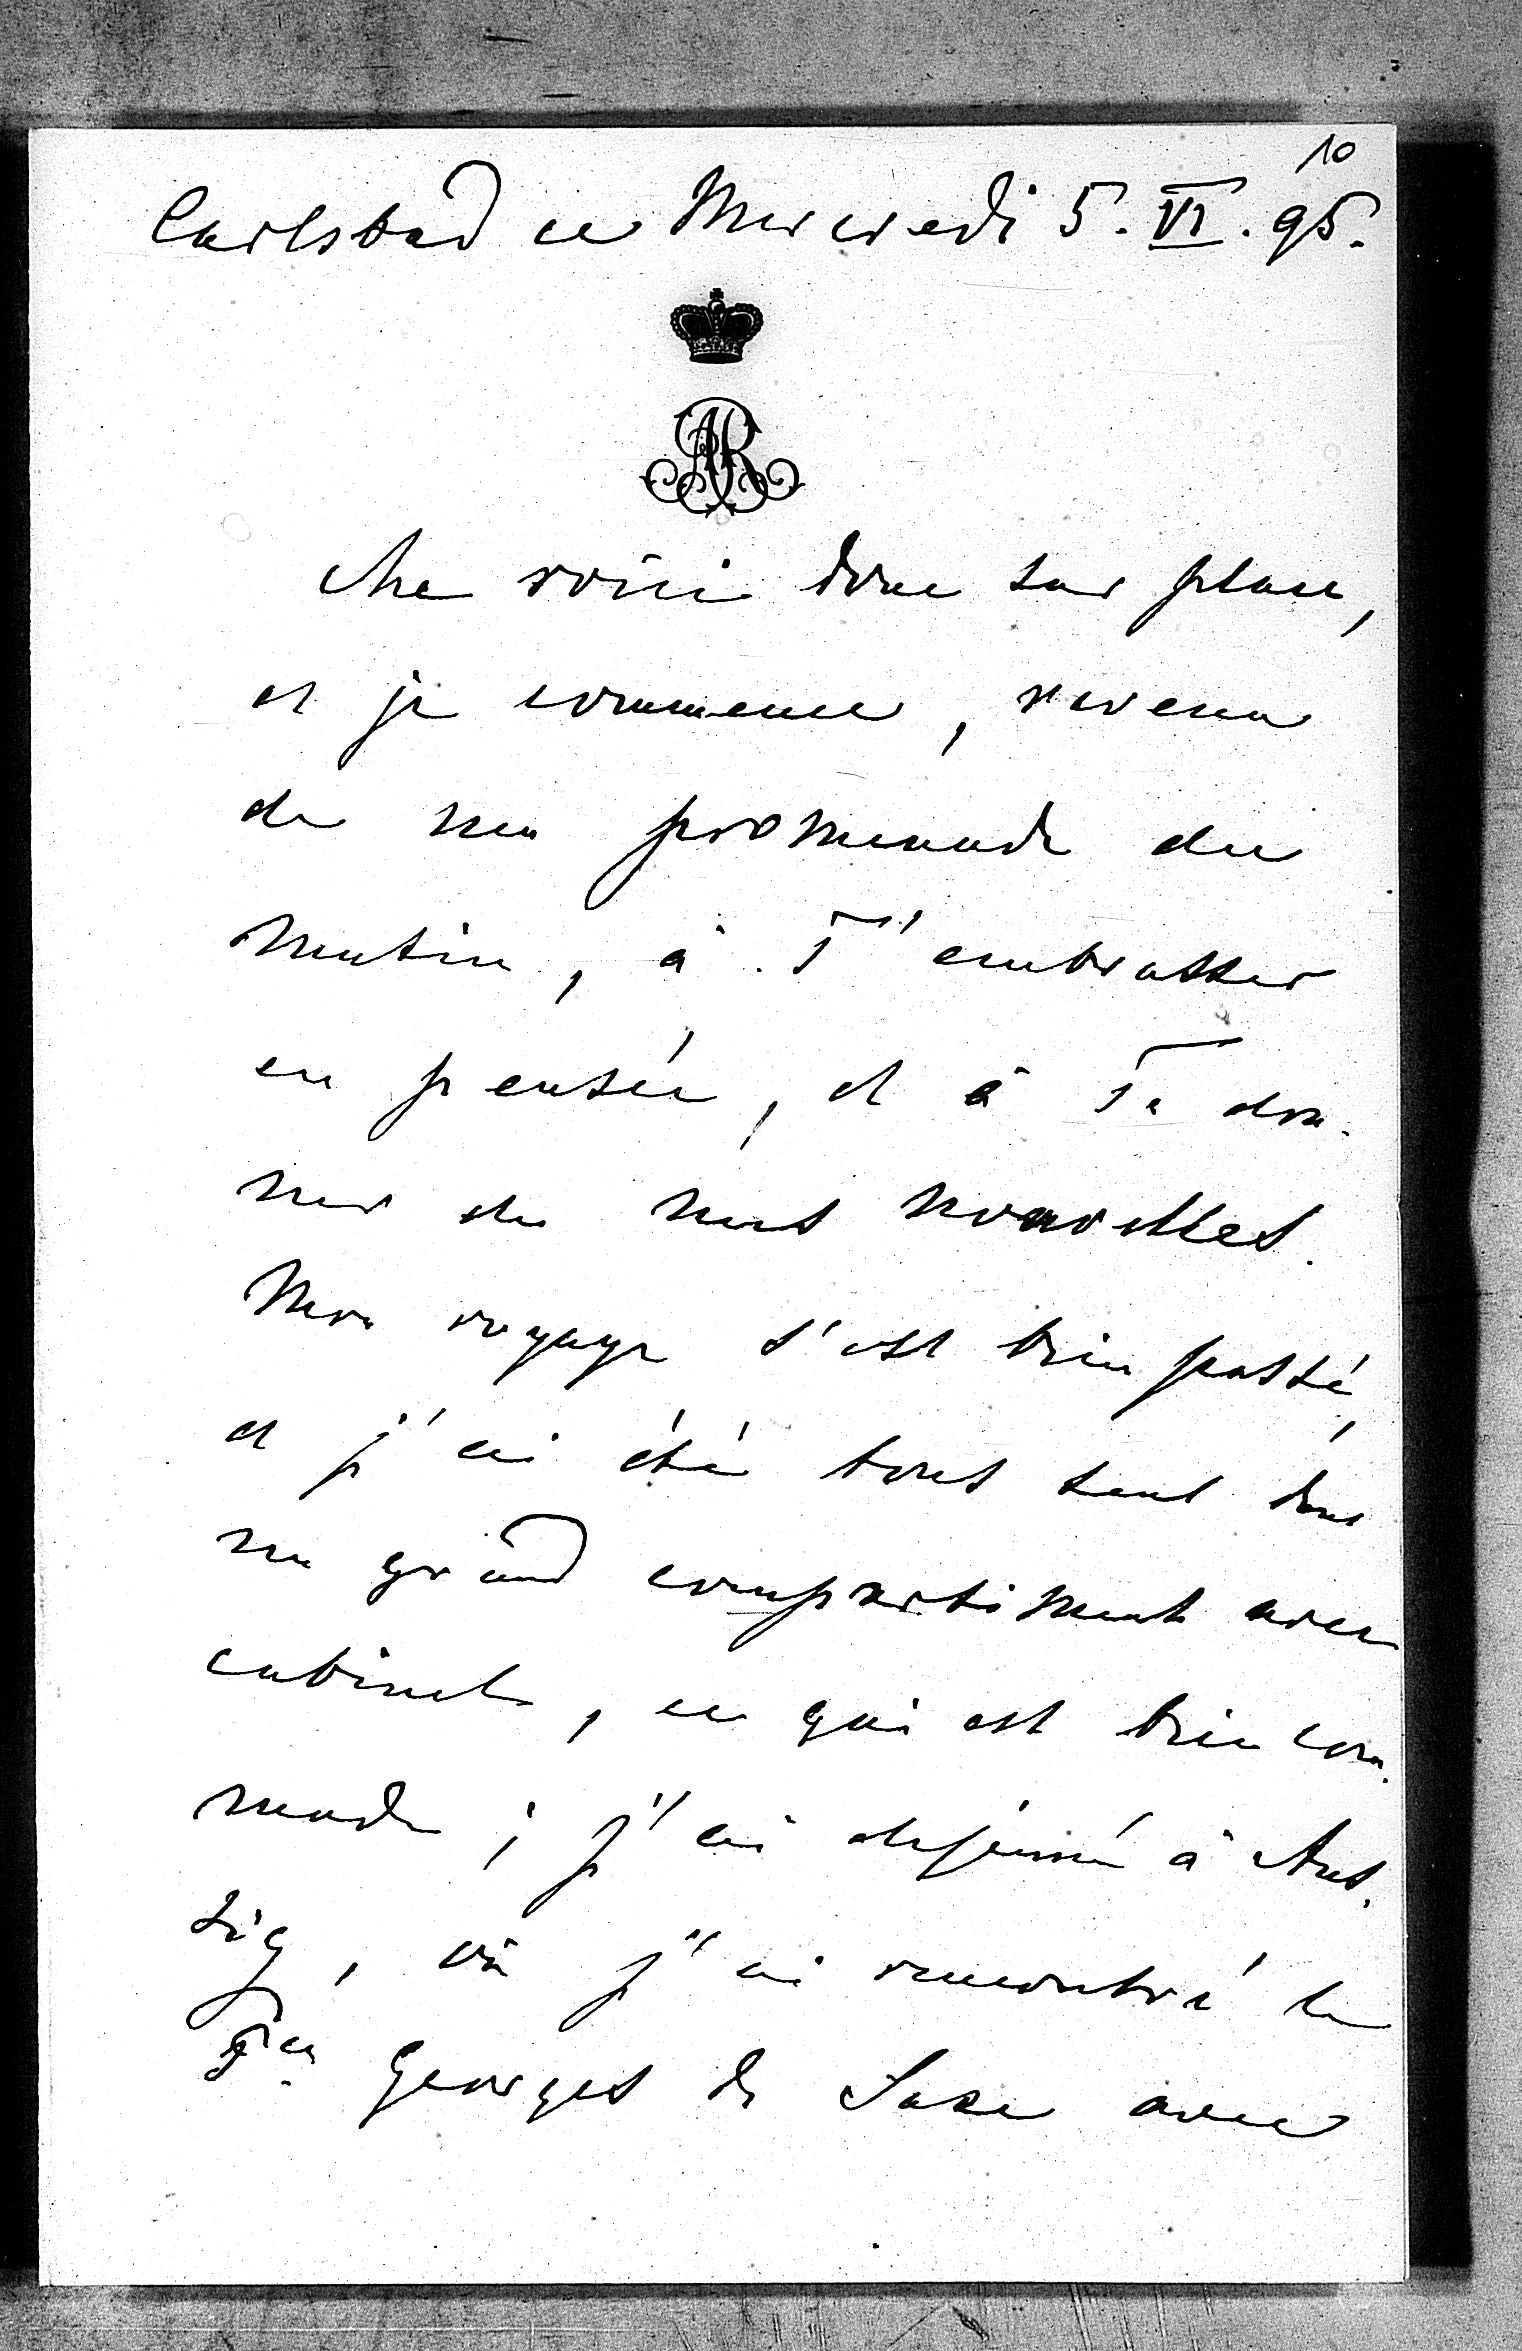 10
Carlsbad ce Mercredi 5. VI. 95.
AR
Me voici donc sur place,
et je commence, revenu
de ma promenade du
matin, à T'embrasser
en pensée, et à Te don-
ner de mes nouvelles.
Mon voyage s'est bien passé,
et j'ai été tout seul dans
un grand compartiment avec
cabinet, ce qui est bien com-
mode; j'ai dejeuné à Aus-
sig, où j'ai rencontré le
Pce Georges de Saxe avec